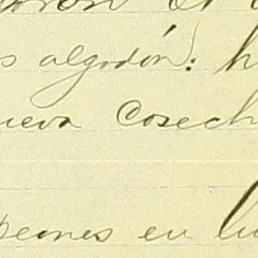 s algodón: h
ueva Cosech
peones en lu